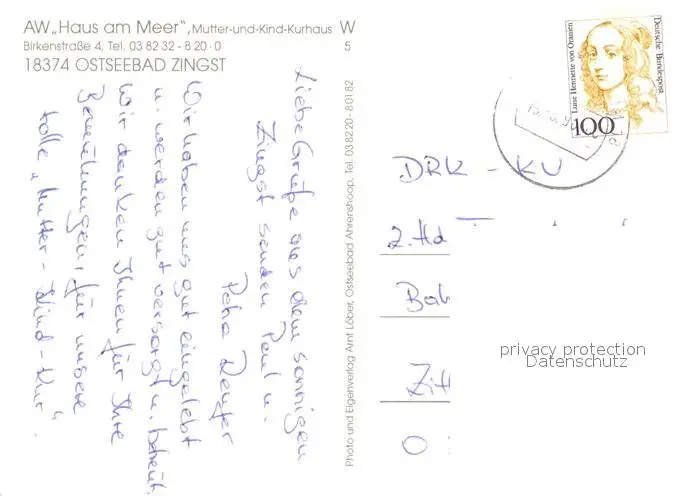 AW „Haus am Meer“, Mutter-und-Kind-Kurhaus W
Birkenstraße 4, Tel. 03 82 32 - 8 20 · 0 5
18374 OSTSEEBAD ZINGST
Liebe Grüße aus dem sonnigen
Zingst senden Paul u.
Petra
Wir haben uns gut eingelebt
u. werden gut versorgt u. betreut.
Wir danken Ihnen für Ihre
Bemühungen, für unsere
tolle „Mutter-Kind-Kur“.
Photo und Eigenverlag Arnt Löber, Ostseebad Ahrenshoop, Tel. 038220 - 80182
Luise Henriette von Oranien
Deutsche Bundespost
100
DRK - KV
z. Hd
Zitt
privacy protection
Datenschutz